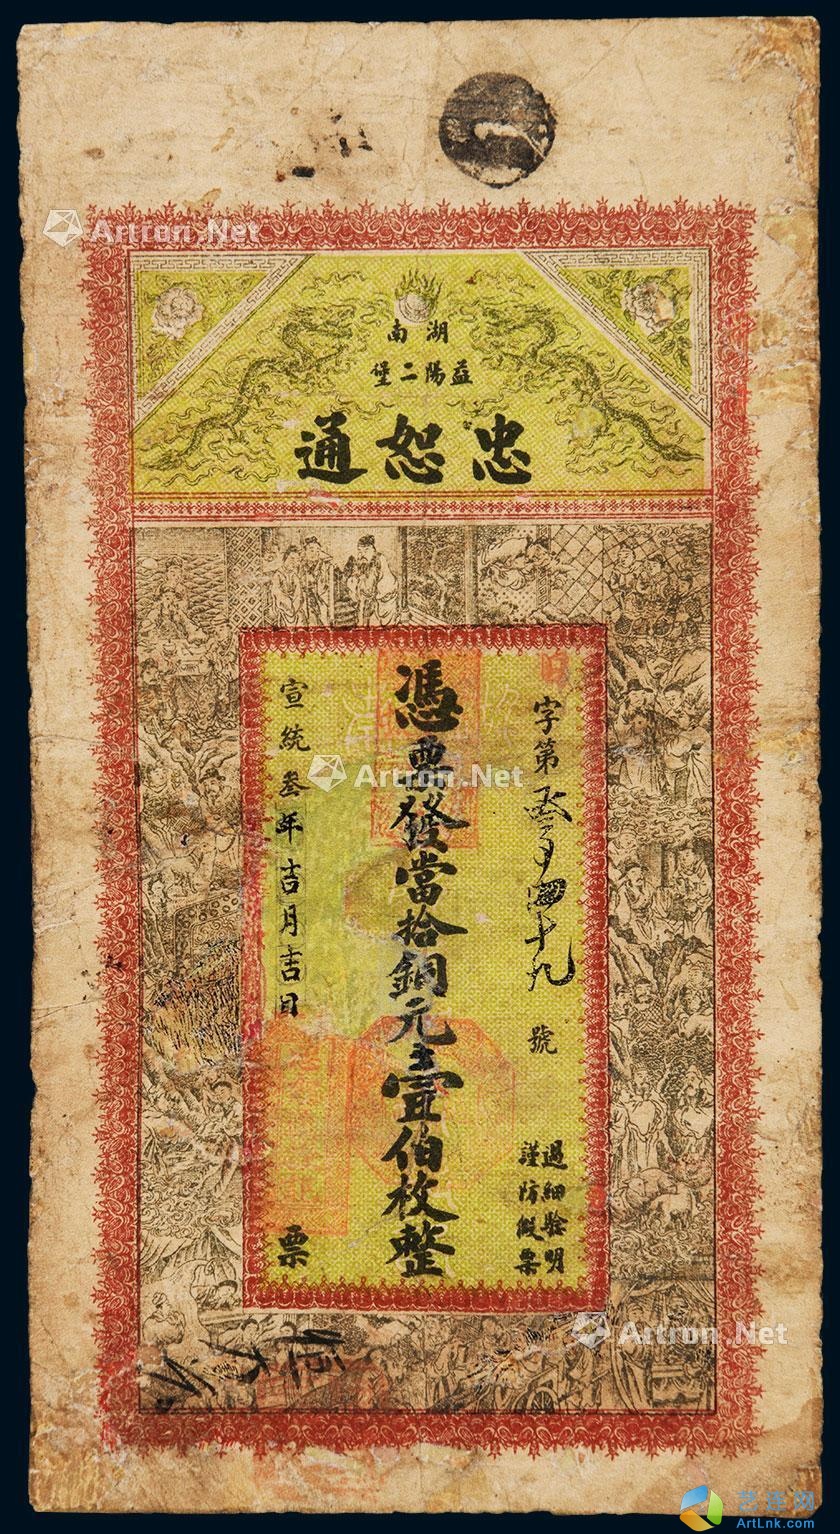 湖南
益陽二堡
忠恕通
字第叁百四十九號
過細驗明
謹防假票
憑票發當拾銅元壹伯枚整
宣統叁年吉月吉日
票
Artron.Net
Artron.Net
Artron.Net
艺连网
ArtLnk.com